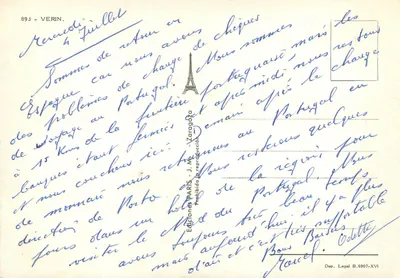 892 - VERIN.
Mercredi
4 Juillet
Sommes de retour en
Espagne car nous avons
des problèmes de change de chèques
de voyage au Portugal. Nous sommes
à 15 Kms de la frontière portugaise mais les
banques étant fermées cet après midi, nous restons
et nous couchons ici. Demain après le change
de monnaie nous retournons au Portugal en
direction de Porto. Nous resterons quelques
jours dans un hôtel de la région pour
visiter le Nord du Portugal. Nous
avons toujours très beau temps
mais aujourd'hui, il y a plus
d'air et c'est très supportable
Bons Baisers
Marcel Odette
Ediciones PARIS - J.M. - Zaragoza
Prohibida la reproducción
Dep. Legal B. 9907-XVI